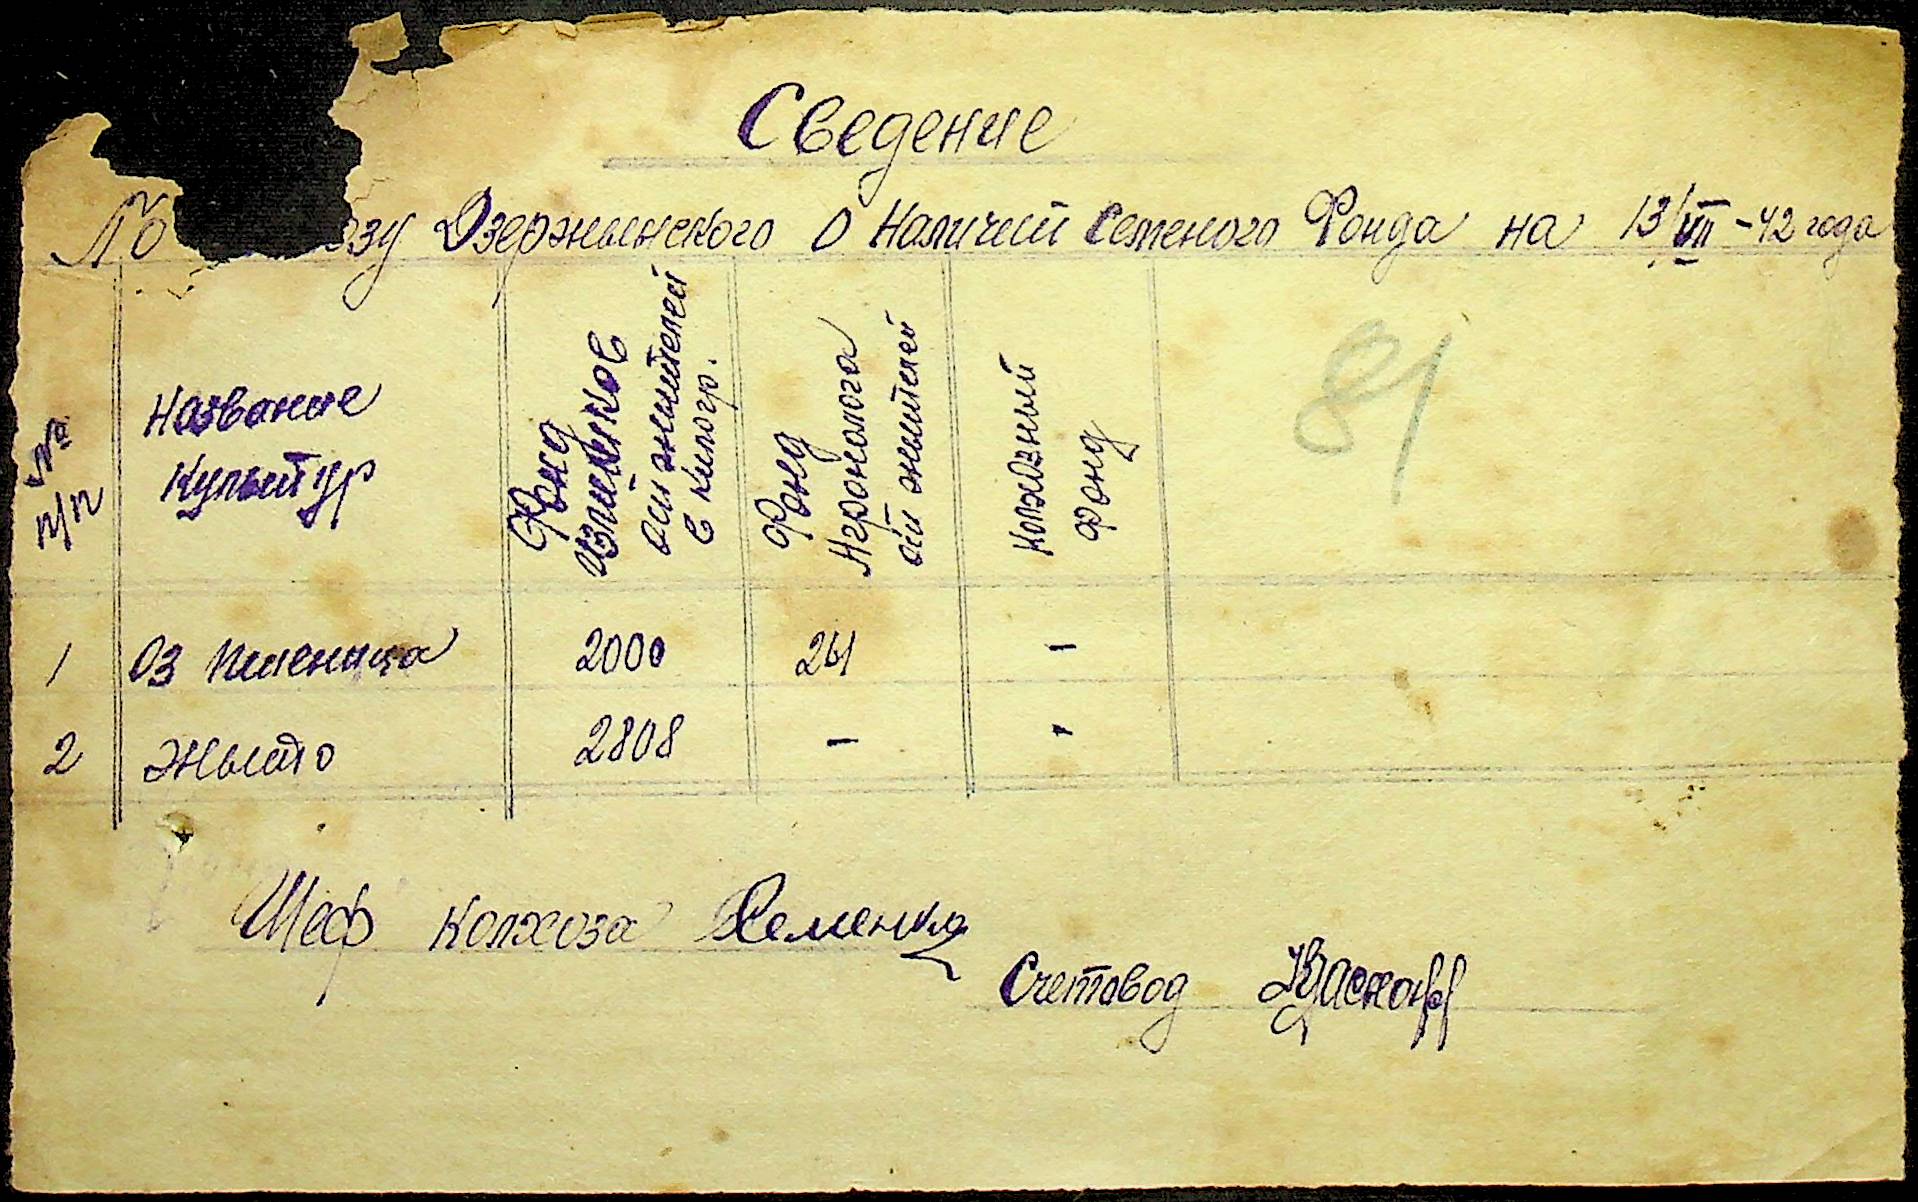 Сведение
По озу Дзержинского о Наличии семеного Фонда на 13/VII-42 года
81
№ п/п
Название
культур
Фонд
излишков
от жителей
в килогр.
Фонд
Агронолога
от жителей
колхозный
фонд
1 Оз пшеница 2000 261 -
2 Жыто 2808 - -
Шеф колхоза Семенко
Счетовод